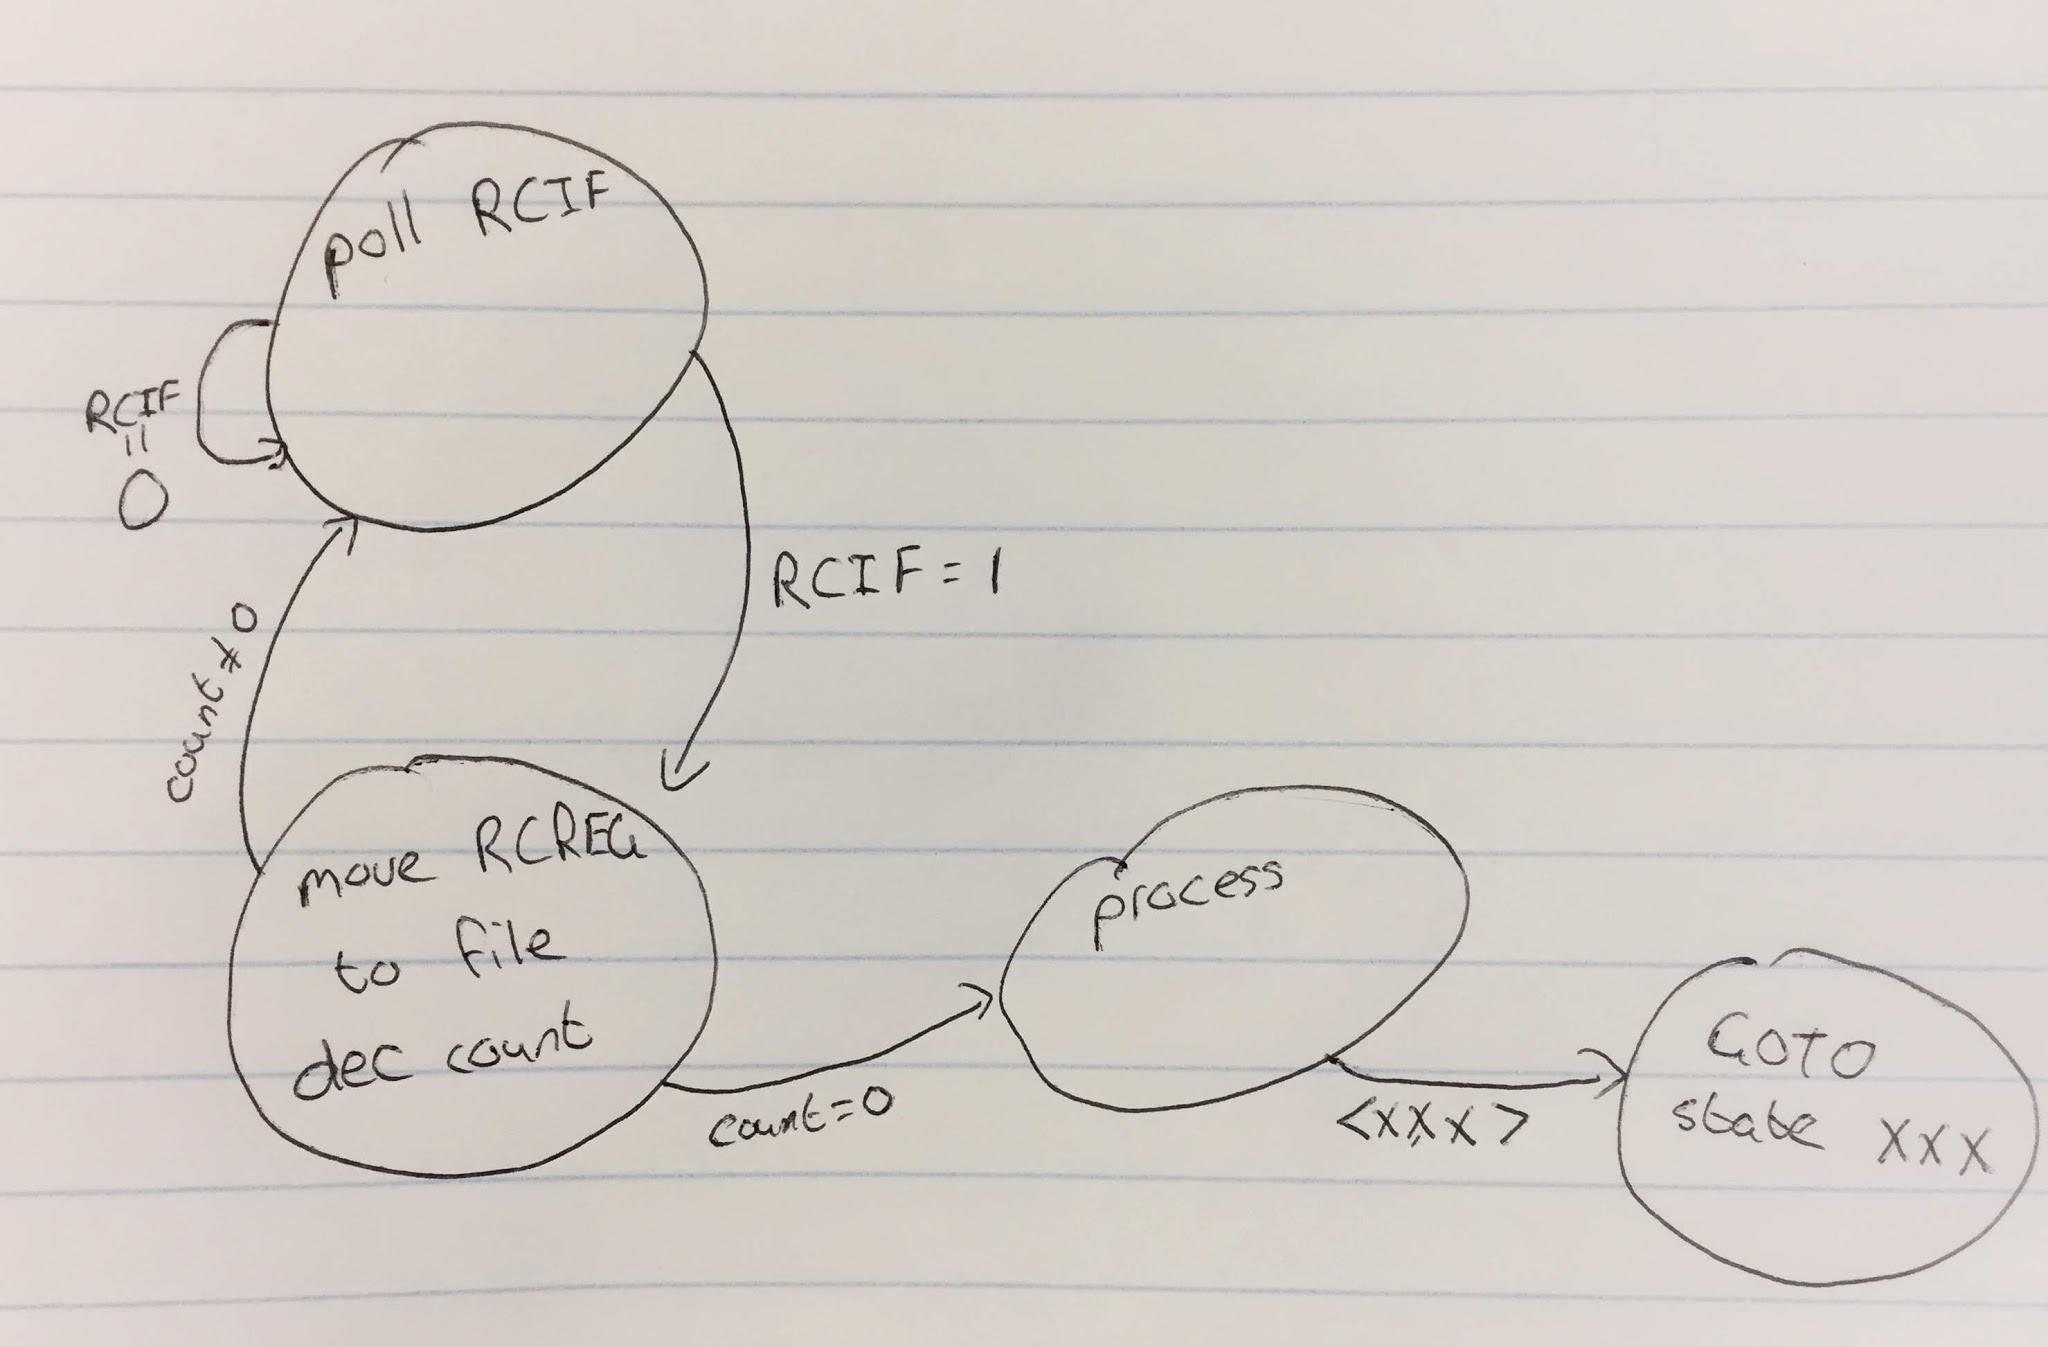 poll RCIF
RCIF
=
0
RCIF = 1
count ≠ 0
move RCREG
to file
dec count
count = 0
process
<xxx>
GOTO
state xxx